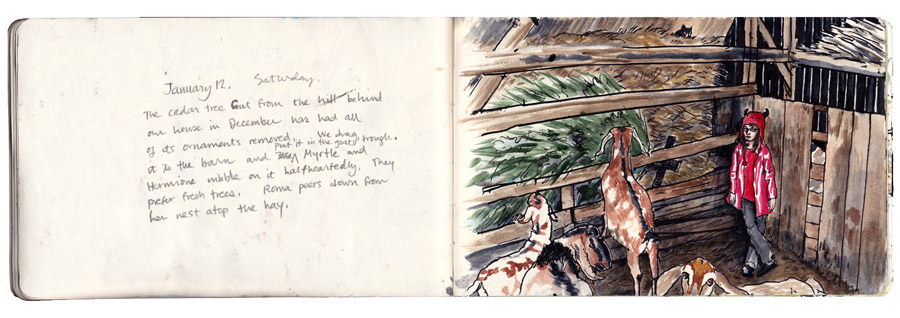 January 12. Saturday.
The cedar tree cut from the hill behind
our house in December has had all
of its ornaments removed. We drag
it to the barn and put it in the goats' trough.
Myrtle and
Hermione nibble on it halfheartedly. They
prefer fresh trees. Roma peers down from
her nest atop the hay.